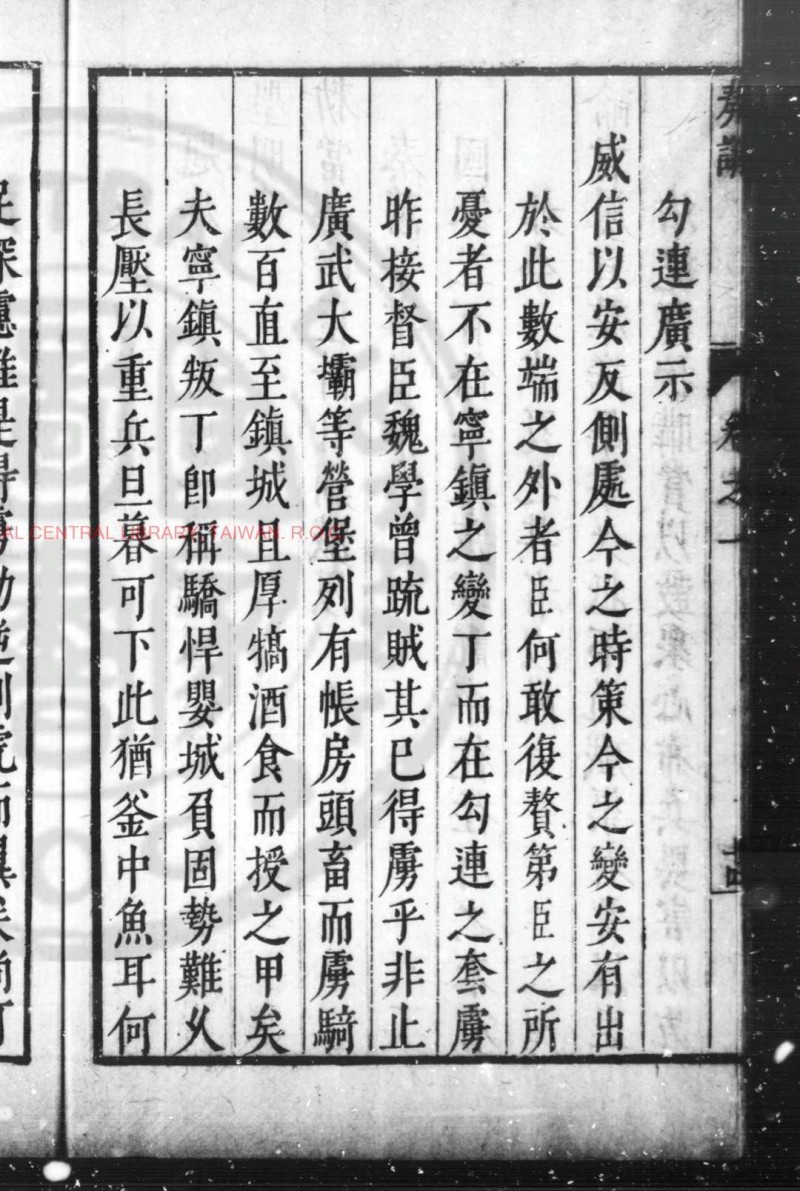 奏議
卷之一
十四
勾連廣示
威信以安反側處今之時策今之變安有出
於此數端之外者臣何敢復贅第臣之所
憂者不在寧鎮之變丁而在勾連之套虜
昨接督臣魏學曾疏賊其已得虜乎非止
廣武大壩等營堡列有帳房頭畜而虜騎
數百直至鎮城且厚犒酒食而授之甲矣
夫寧鎮叛丁卽稱驕悍嬰城負固勢難久
長壓以重兵旦暮可下此猶釜中魚耳何
AL CENTRAL LIBRARY, TAIWAN, R.O.C